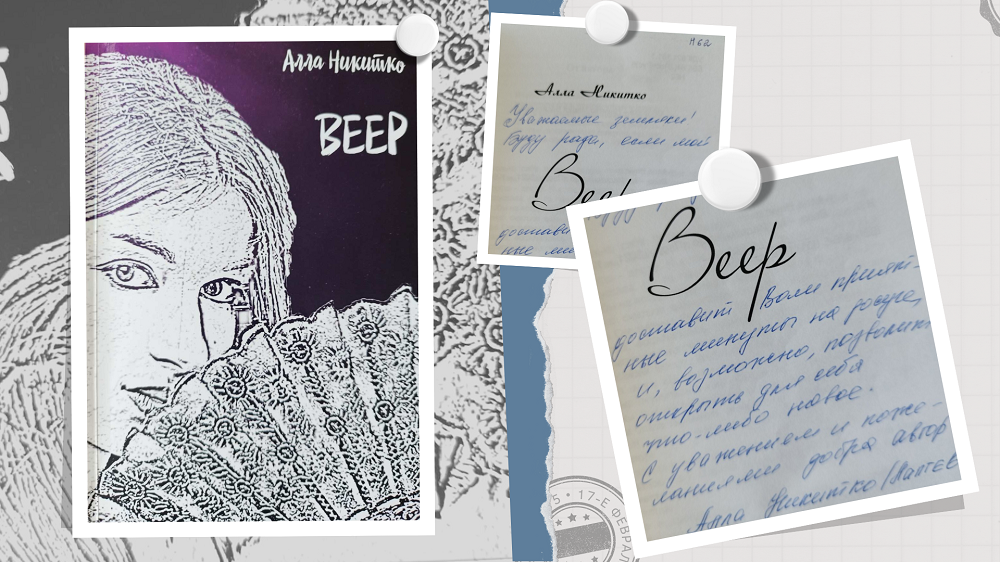 Алла Никитко
ВЕЕР
н62
Алла Никитко
Уважаемые земляки!
Буду рада, если мой
Веер
доставит
ные ми
Веер
доставит Вам прият-
ные минуты на досуге,
и, возможно, позволит
открыть для себя
что-либо новое.
С уважением и поже-
ланиями добра автор
Алла Никитко (Лаптев
5 • 17-Е ФЕВРАЛ